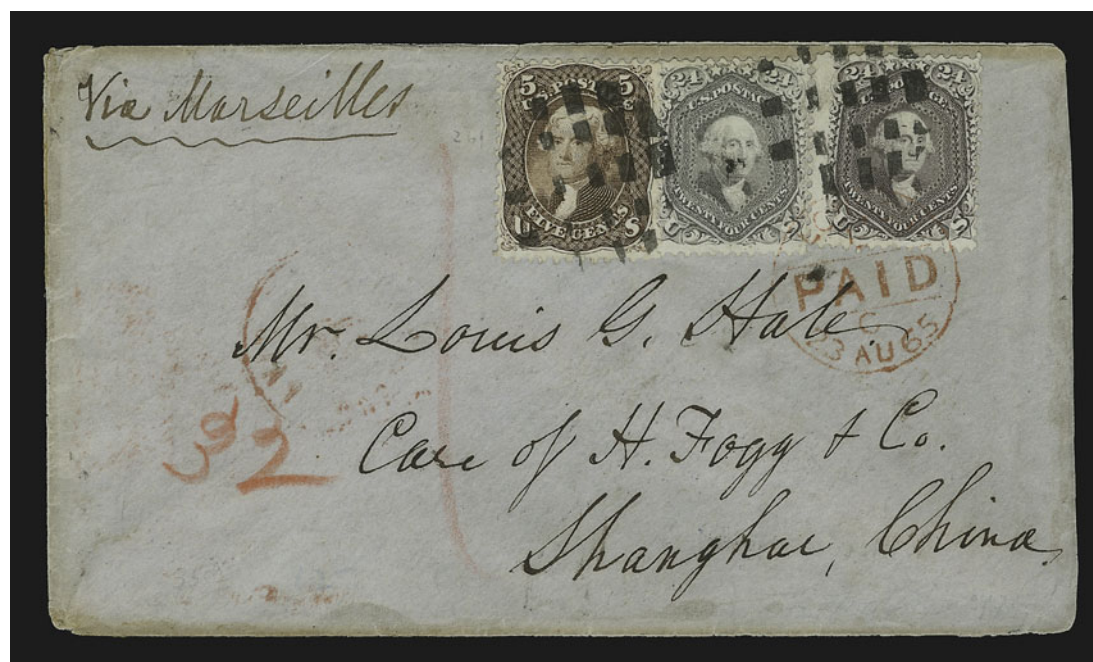 Via Marseilles
5 5
U.S. POSTAGE
FIVE CENTS
U S
24 24
U.S. POSTAGE
TWENTY FOUR CENTS
U S
24 24
U.S. POSTAGE
TWENTY FOUR CENTS
U S
PAID
C
23 AU 65
Mr. Louis G. Hale
Care of H. Fogg & Co.
Shanghae, China
32